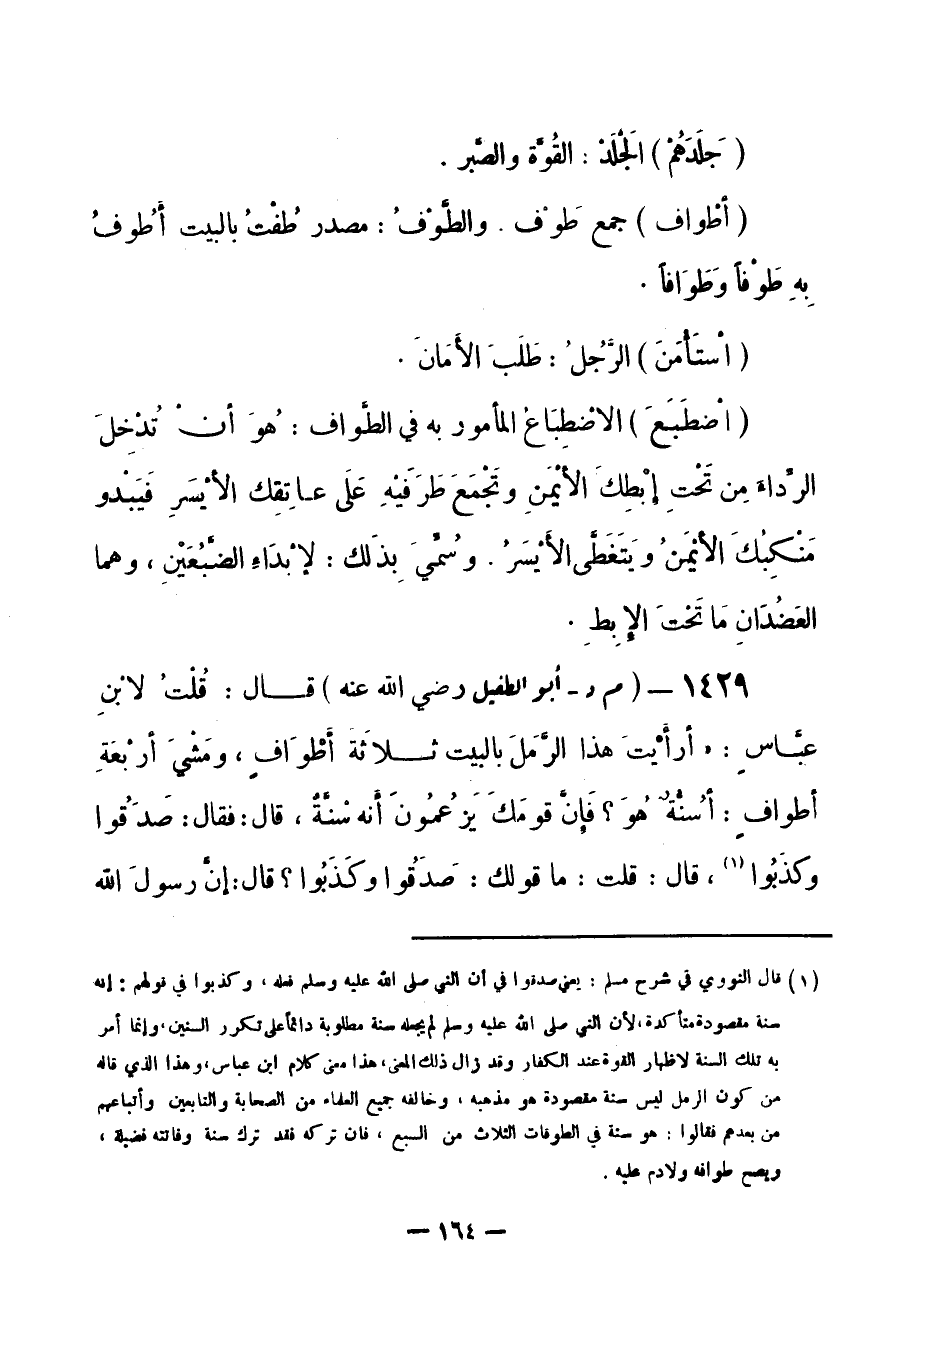 ( جَلَدَهُمْ ) الجَلَدُ : القُوَّة والصَّبر .
( أطْواف ) جمع طَوْف . والطَّوْفُ : مصدر طُفْتُ بالبيت أطُوفُ
بِهِ طَوْفاً وَطَوَافاً .
( اسْتَأْمَنَ ) الرَّجُلُ : طَلَبَ الأَمَانَ .
( اضطَبَعَ ) الاضْطِبَاعُ المأمور به في الطَّواف : هُوَ أن تُدْخِلَ
الرِّداءَ مِن تَحْتِ إبْطِكَ الأيْمَنِ وتَجْمَعَ طَرَفَيْهِ عَلَى عاتِقِك الأيْسَرِ فَيَبْدو
مَنْكِبُكَ الأيْمَنُ وَيَتَغَطَّى الأَيْسَرُ . وسُمِّيَ بِذلك : لإبْدَاءِ الضَّبُعَيْنِ ، وهما
العَضُدَانِ مَا تَحْتَ الإِبطِ .
١٤٢٩ – ( م د - أبو الطفيل رضي الله عنه ) قال : قُلْتُ لابْنِ
عبَّاسٍ : « أرأَيْتَ هذا الرَّمَلَ بالبيت ثلاثَةَ أطْوَافٍ ، ومَشْيَ أرْبعَةِ
أطوافٍ : أسُنَّةٌ هُوَ ؟ فَإنَّ قومَكَ يَزْعُمُونَ أنه سُنَّةٌ ، قال : فقال : صَدَقُوا
وكذَبُوا (١) ، قال : قلت : ما قولك : صَدَقُوا وكَذَبُوا ؟ قال : إنَّ رسولَ الله
(١) قال النووي في شرح مسلم : يعني صدقوا في أن النبي صلى الله عليه وسلم فعله ، وكذبوا في قولهم : إنه
سنة مقصودة متأكدة ، لأن النبي صلى الله عليه وسلم لم يجعله سنة مطلوبة دائماً على تكرر السنين ، وإنما أمر
به تلك السنة لاظهار القوة عند الكفار وقد زال ذلك المعنى ، هذا معنى كلام ابن عباس ، وهذا الذي قاله
من كون الرمل ليس سنة مقصودة هو مذهبه ، وخالفه جميع العلماء من الصحابة والتابعين وأتباعهم
من بعدهم فقالوا : هو سنة في الطوفات الثلاث من السبع ، فان تركه فقد ترك سنة وفاتته فضيلة ،
ويصح طوافه ولادم عليه .
– ١٦٤ –